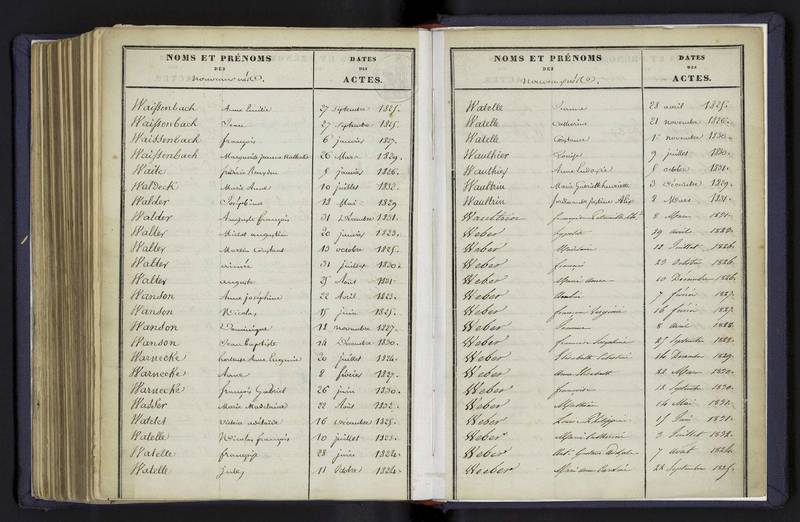 NOMS ET PRÉNOMS
DES
nouveaux nés.
DATES
DES
ACTES.
Waissenbach Anne Emilie 27 Septembre 1825.
Waissenbach Jean 27 Septembre 1825.
Waissenbach françois 6 janvier 1827.
Waissenbach Marguerite Jeanne 26 Mars 1829.
Waite frédéric 8 janvier 1826.
Waldeck Marie Anne 10 juillet 1832.
Walder Joséphine 18 Mai 1829
Walder Auguste françois 31 Décembre 1831.
Walter Michel augustin 20 janvier 1823.
Walter Martin Constant 13 octobre 1825.
Walter aimée 31 juillet 1830.
Walter auguste 25 Août 1831.
Wanson Anne joséphine 22 Avril 1823.
Wanson Nicolas 15 juin 1825.
Wanson Dominique 18 novembre 1827.
Wanson Jean baptiste 14 Décembre 1830.
Warnecke Anne Eugénie 20 juillet 1824.
Warnecke Anne 8 février 1827.
Warnecke françois Gabriel 26 juin 1830.
Marie Madelaine 22 Août 1832.
Watelet 16 Décembre 1825.
Watelle Nicolas françois 10 juillet 1823.
Watelle françois 28 juin 1824.
Watelle Jules 11 Octobre 1824.
NOMS ET PRÉNOMS
DES
nouveaux nés.
DATES
DES
ACTES.
Watelle 28 avril 1825.
Watelle Catherine 21 novembre 1826.
Watelle Constance 1er novembre 1830.
Wauthier Louise 9 juillet 1830.
Wauthier Anne 8 octobre 1831.
Waultrin Marie henriette 3 Décembre 1829.
Waultrin Alix 2 Mars 1831.
françoise 8 Mars 1831.
Weber hypolite 29 avril 1823.
Weber 12 Juillet 1826.
Weber françois 23 Octobre 1826.
Weber Marie Anne 10 Décembre 1826.
Weber 7 février 1827.
Weber françois 16 février 1827.
Weber 8 avril 1828.
Weber 27 Septembre 1828.
Weber Elisabeth 14 Décembre 1829.
Weber Anne Elisabeth 22 Mars 1830.
Weber françoise 12 Septembre 1830.
Weber Mathieu 14 Mai 1831.
Weber Louis Philippe 15 Juin 1831.
Weber Marie Catherine 3 Juillet 1832.
Weber 7 Avril 1824.
Weber Marie anne 28 Septembre 1825.